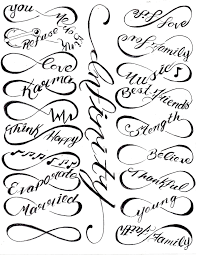 you
me
Refuse to
love
Karma
Think Happy
Evaporate
Married
infinity
Self love
family
Music
Best Friends
Strength
Believe
Thankful
young
family